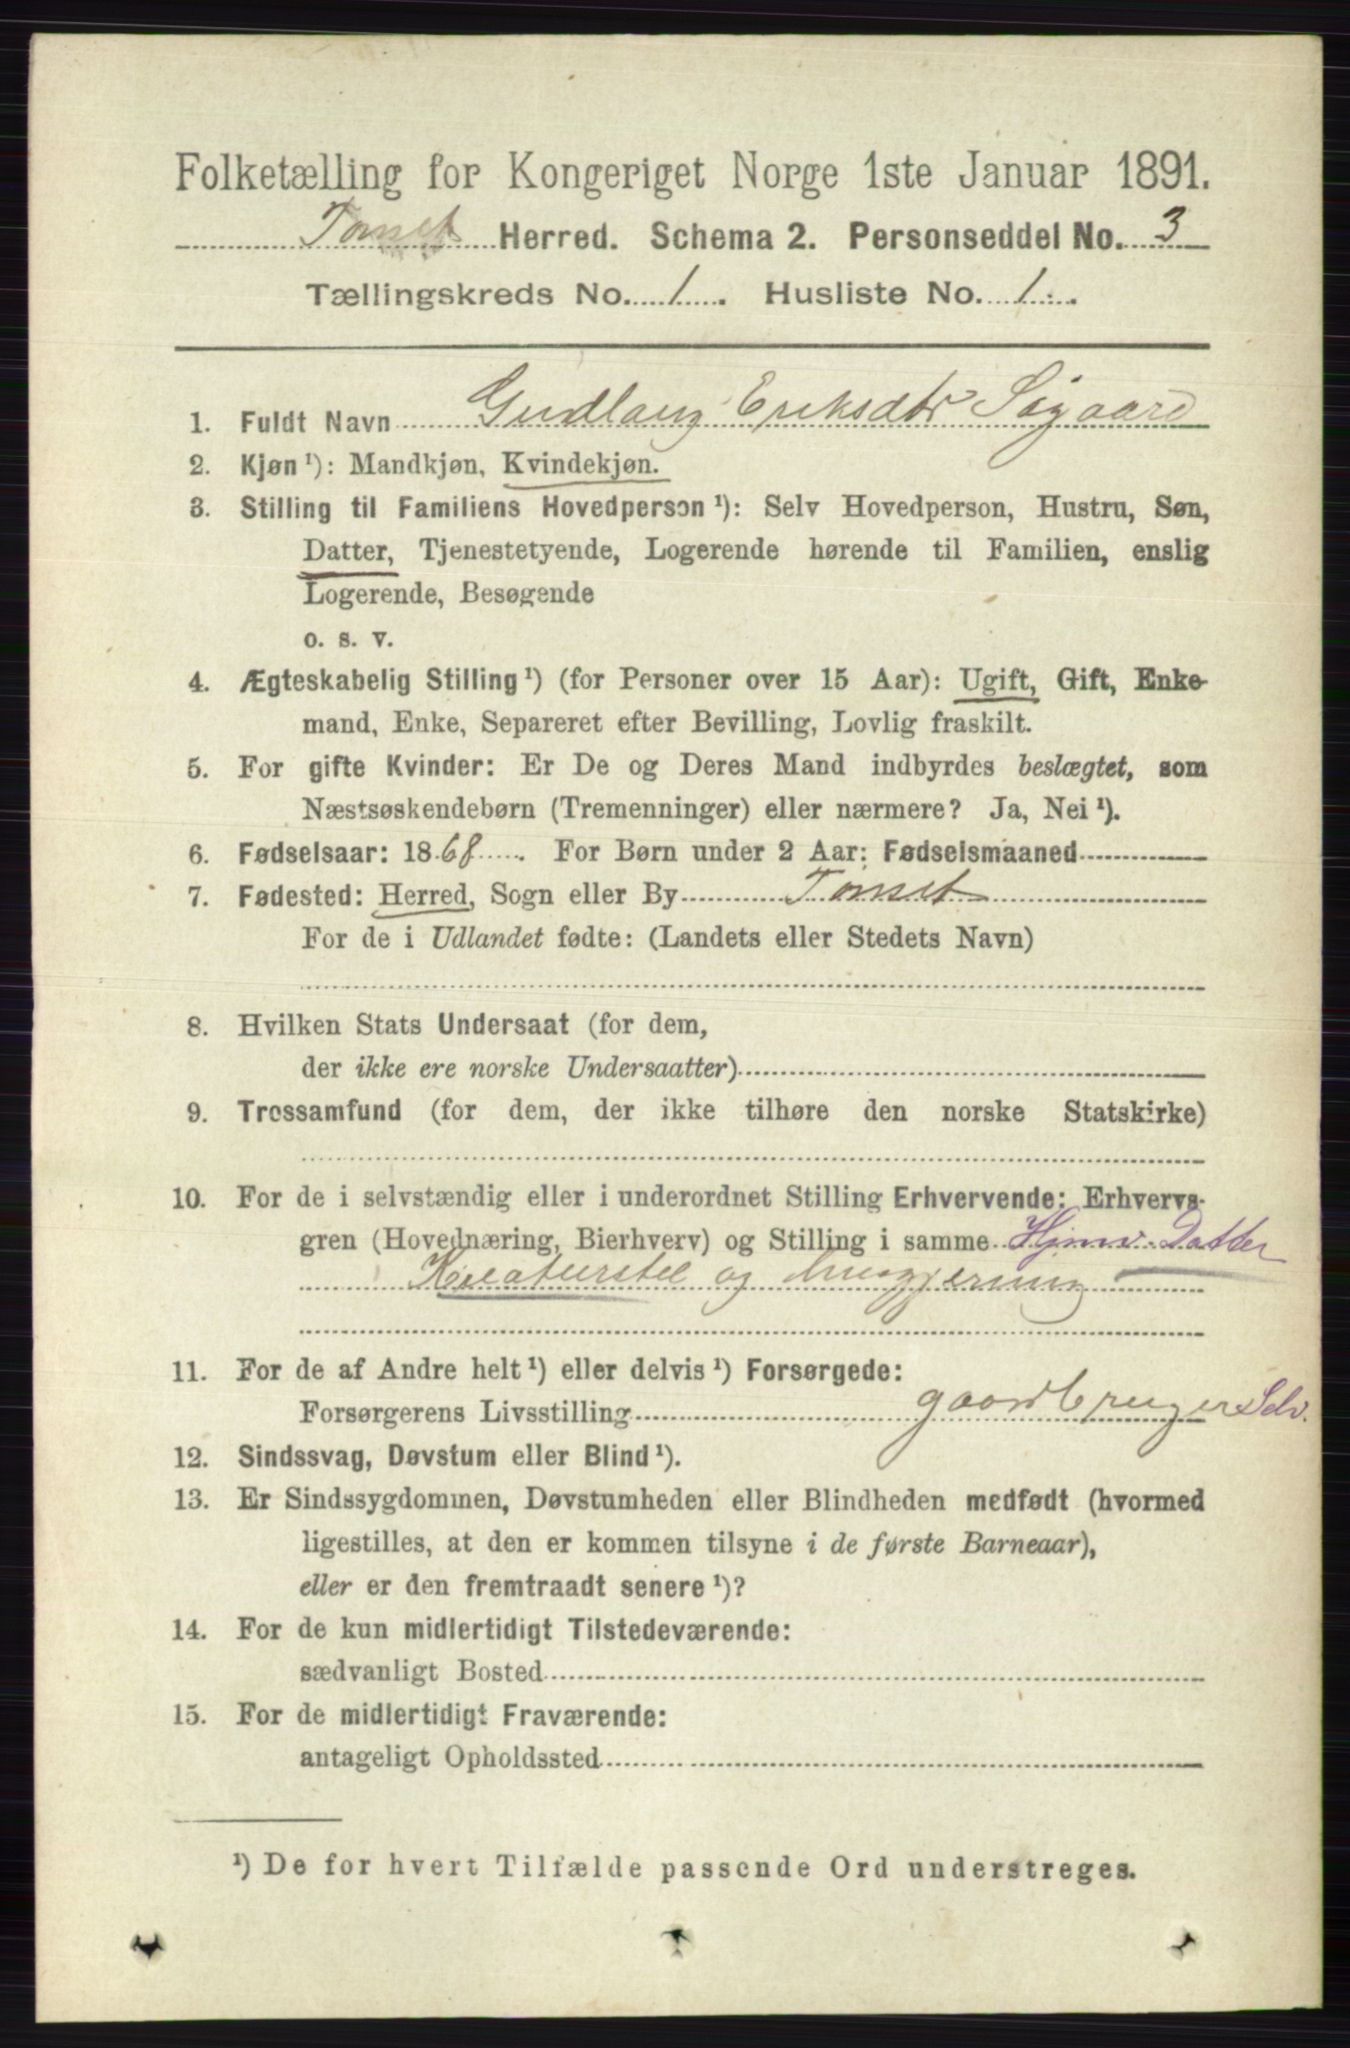 Folketælling for Kongeriget Norge 1ste Januar 1891.
Tønset Herred. Schema 2. Personseddel No. 3
Tællingskreds No. 1. Husliste No. 1.
1. Fuldt Navn Gudlaug Eriksdtr Søgaard
2. Kjøn ¹): Mandkjøn, Kvindekjøn.
3. Stilling til Familiens Hovedperson ¹): Selv Hovedperson, Hustru, Søn,
Datter, Tjenestetyende, Logerende hørende til Familien, enslig
Logerende, Besøgende
o. s. v.
4. Ægteskabelig Stilling ¹) (for Personer over 15 Aar): Ugift, Gift, Enke-
mand, Enke, Separeret efter Bevilling, Lovlig fraskilt.
5. For gifte Kvinder: Er De og Deres Mand indbyrdes beslægtet, som
Næstsøskendebørn (Tremenninger) eller nærmere? Ja, Nei ¹).
6. Fødselsaar: 1868. For Børn under 2 Aar: Fødselsmaaned
7. Fødested: Herred, Sogn eller By Tønset
For de i Udlandet fødte: (Landets eller Stedets Navn)
8. Hvilken Stats Undersaat (for dem,
der ikke ere norske Undersaatter)
9. Trossamfund (for dem, der ikke tilhøre den norske Statskirke)
10. For de i selvstændig eller i underordnet Stilling Erhvervende: Erhvervs-
gren (Hovednæring, Bierhverv) og Stilling i samme Hjmv. Datter
Kreaturstel og husgjerning
11. For de af Andre helt ¹) eller delvis ¹) Forsørgede:
Forsørgerens Livsstilling gaardbruger Selv.
12. Sindssvag, Døvstum eller Blind ¹).
13. Er Sindssygdommen, Døvstumheden eller Blindheden medfødt (hvormed
ligestilles, at den er kommen tilsyne i de første Barneaar),
eller er den fremtraadt senere ¹)?
14. For de kun midlertidigt Tilstedeværende:
sædvanligt Bosted
15. For de midlertidigt Fraværende:
antageligt Opholdssted
¹) De for hvert Tilfælde passende Ord understreges.